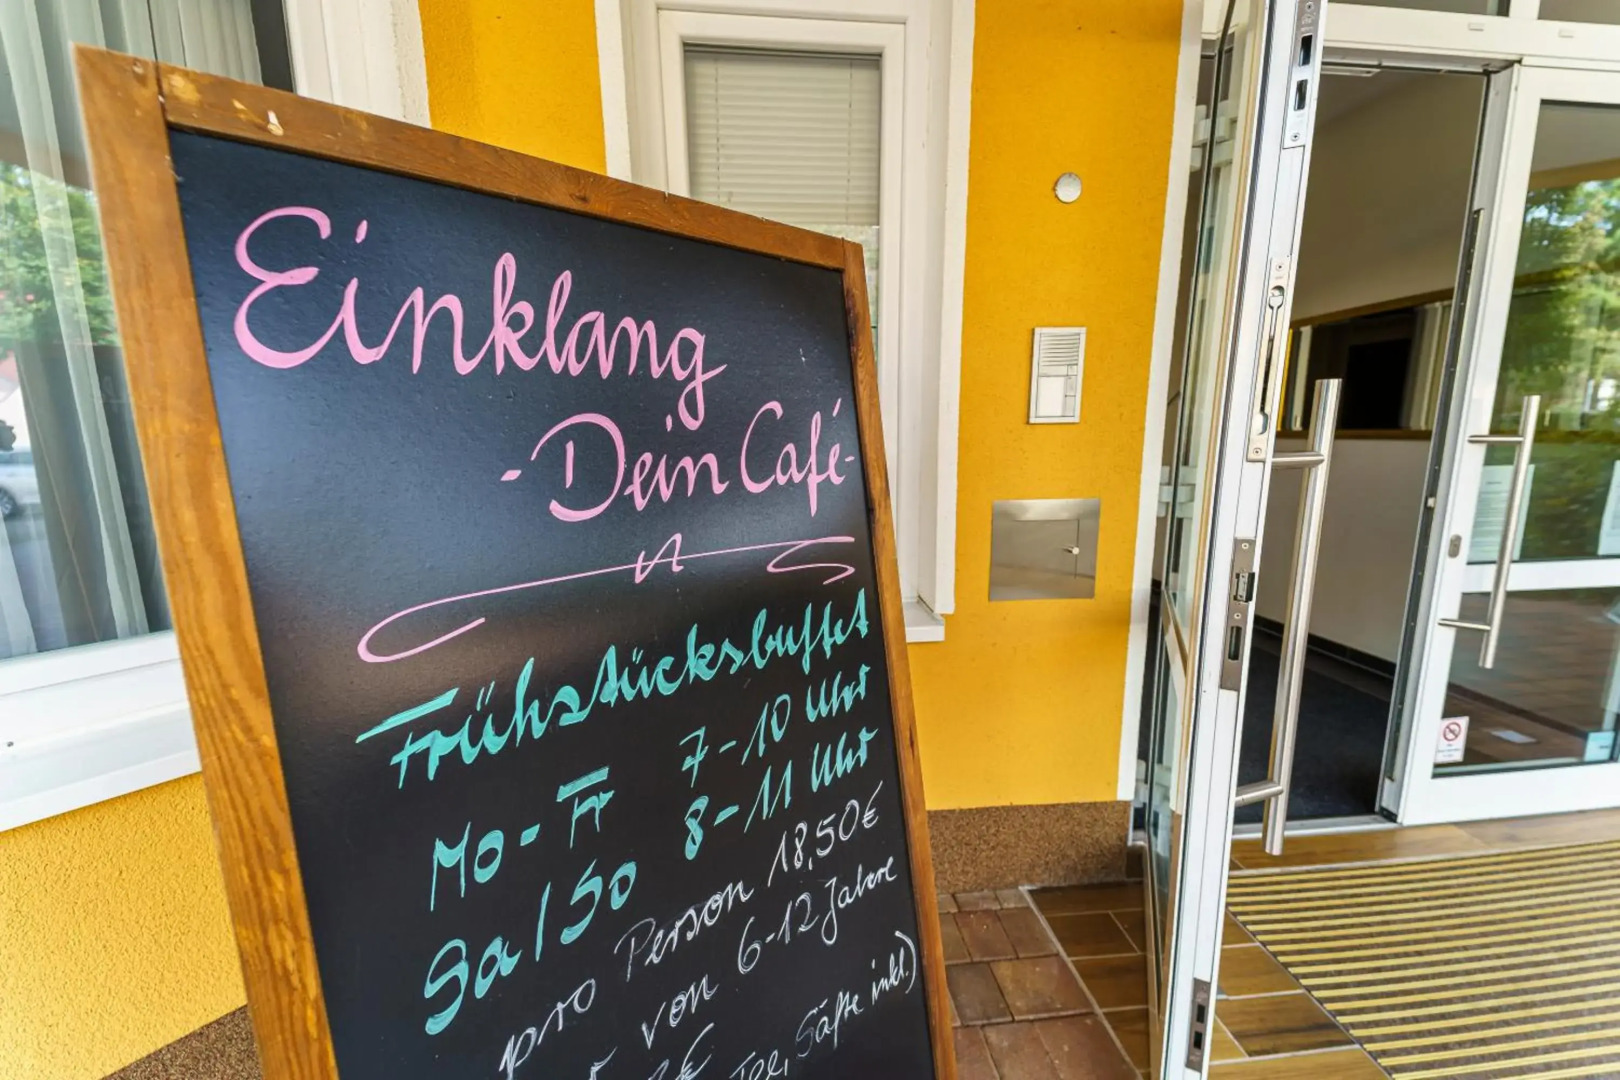 Einklang
- Dein Café -
Frühstücksbuffet
Mo - Fr 7 - 10 Uhr
Sa / So 8 - 11 Uhr
pro Person 18,50€
von 6 - 12 Jahre
€
Tee, Säfte inkl.)